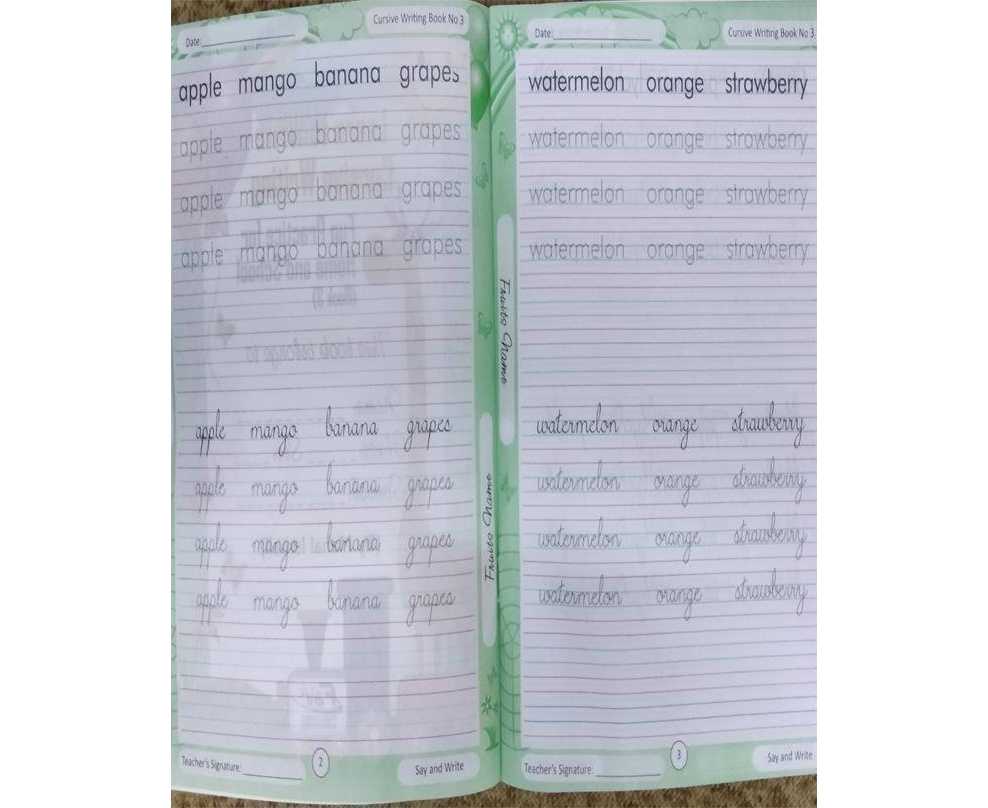 Date:
Cursive Writing Book No 3
apple mango banana grapes
apple mango banana grapes
apple mango banana grapes
apple mango banana grapes
apple mango banana grapes
apple mango banana grapes
apple mango banana grapes
apple mango banana grapes
Fruits Name
Teacher's Signature:
2
Say and Write
Date:
Cursive Writing Book No 3
watermelon orange strawberry
watermelon orange strawberry
watermelon orange strawberry
watermelon orange strawberry
Fruits Name
watermelon orange strawberry
watermelon orange strawberry
watermelon orange strawberry
watermelon orange strawberry
Teacher's Signature:
3
Say and Write